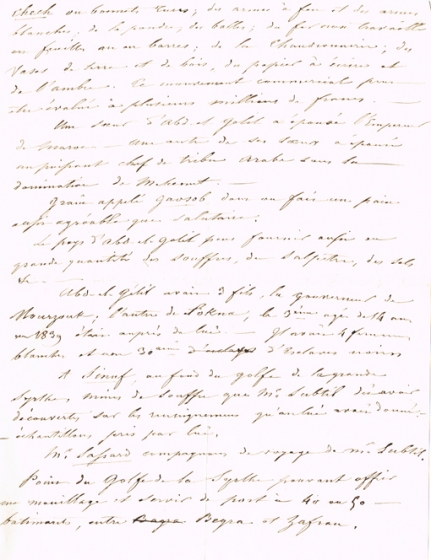 check ou bonnets turcs; des armes à feu et des armes
blanches; de la poudre, des balles; du fer non travaillé
en feuilles ou en barres; de la chaudronnerie; des
vases de terre et de bois, du papier à écrire et
de l'ambre. Ce mouvement commercial peut
être évalué à plusieurs millions de francs. —
Une sœur d'Abd-el Gelil a épousé l'Empereur
de Maroc — une autre de ses sœurs a épousé
un puissant chef de tribu Arabe sous la
domination de Mehemet. —
Grain appelé gavsob dont on fait un pain
aussi agréable que salutaire.
Le pays d'Abd-el-Gelil peut fournir aussi en
grande quantité des souffres, du salpêtre, des sels
&c —
Abd-el-Gélil avait 3 fils, le gouverneur de
Mourzouk; l'autre de Sokna, le 3ème agé de 14 ans
en 1839 était auprès de lui. — Il avait 4 femmes
blanches et une 30aine d'esclaves noires
A Sinouf, au fond du golfe de la grande
Syrthe, mines de souffre que Mr. Subtil dit avoir
découvertes sur les renseignemens qu'on lui avait donnés
échantillons pris par lui.
Mr. compagnon de voyage de Mr. Subtil.
Point du Golfe de la Syrthe pouvant offrir
un mouillage et servir de port à 40 ou 50 —
batiments, entre Bogra et Zafran.